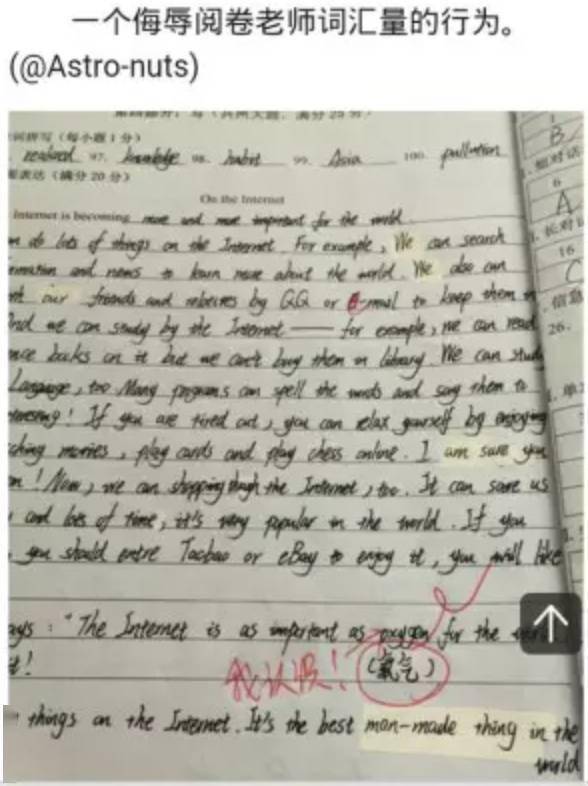 一个侮辱阅卷老师词汇量的行为。
(@Astro-nuts)
(每小题1分)
realized 97. knowledge 98. habit 99. Asia 100. pollution
表达(满分20分)
On the Internet
Internet is becoming more and more important for the world.
do lots of things on the Internet. For example, We can search
and news to learn more about the world. We also can
our friends and by QQ or E-mail to keep them in
And we can study by the Internet —— for example, we can read
books on it but we can't buy them in library. We can study
Language, too. Many programs can spell the words and say them to
! If you are tired out, you can relax yourself by enjoying
movies, play cards and play chess online. I am sure you
! Now, we can shopping the Internet, too. It can save us
and lots of time, it's very popular in the world. If you
you should entre Taobao or eBay to enjoy it, you will like
says: "The Internet is as important as oxygen for the world.
我认识! (氧气)
things on the Internet. It's the best man-made thing in the
world
B
6
A
16
C
26.